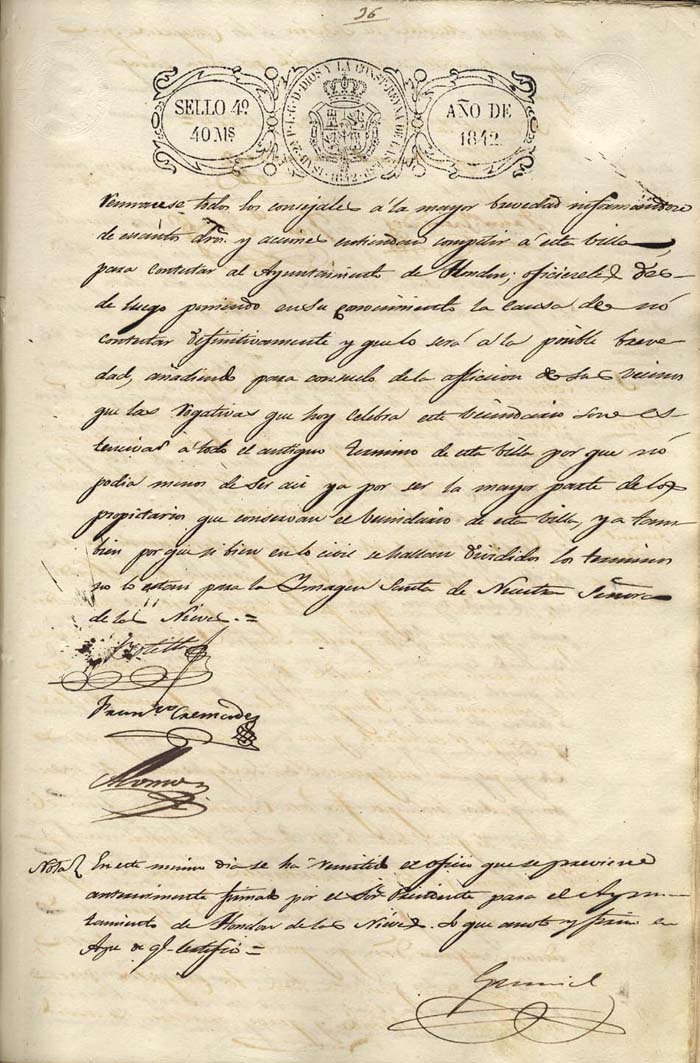 36
SELLO 4º
40 Ms
ISAB. 2ª P. L. G. D. DIOS Y LA CONST. REYNA DE LAS ESP. 1842
AÑO DE
1842
todos los consejales á la mayor brevedad
de cuantos dros. y acciones entiendan competir á esta villa
para contestar al Ayuntamiento de Hondon; oficiesele des-
de luego poniendo en su conocimiento la causa de nó
contestar definitivamente y que lo será á la posible breve-
dad, añadiendo para consuelo de la afliccion de sus vecinos
que las rogativas que hoy celebra este vecindario son es-
tencivas á todo el antiguo termino de esta villa por que nó
podia menos de ser asi ya por ser la mayor parte de los
propietarios que conservan el vecindario de esta villa, y tam
bien por que si bien en lo civil se hallan divididos los terminos
no lo estan para la Imagen Santa de Nuestra Señora
de las Nieves.=
Botella
Cremades
Nota En este mismo dia se há remitido el oficio que se previene
anteriormente firmado por el Sor. Presidente para el Ayun-
tamiento de Hondon de las Nieves. Lo que anoto y firmo en
de qe. certifico=